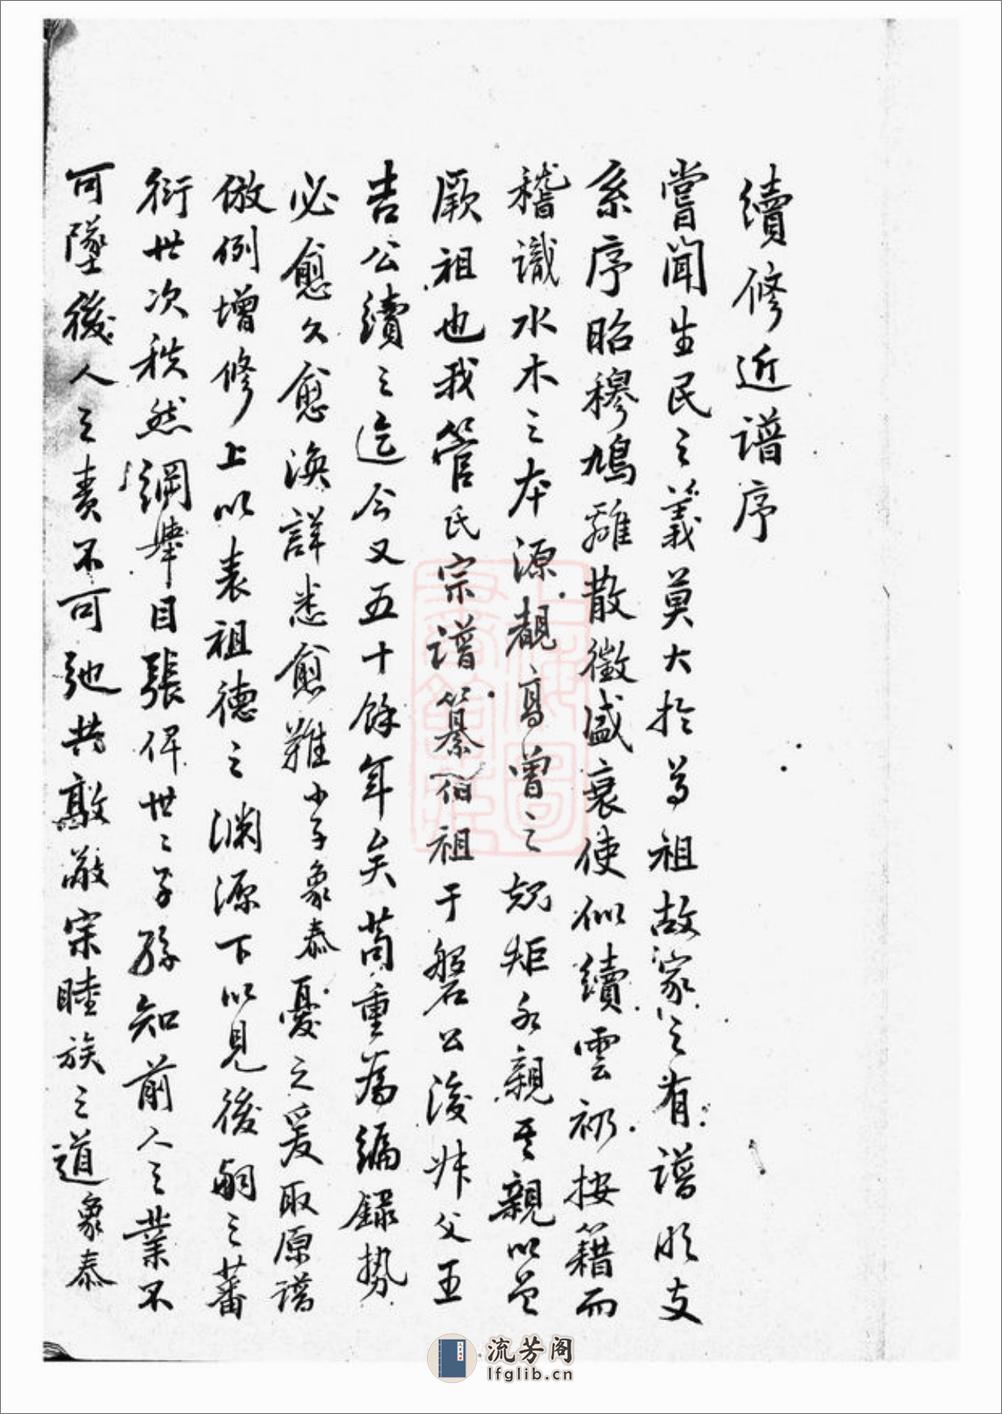 續修近譜序
嘗聞生民之義莫大於尊祖故家之有譜所支
系序昭穆鳩離散徵盛衰使似續雲礽按籍而
稽識水木之本源覩高曾之規矩永親其親以
厥祖也我管氏宗譜纂伯祖于磐公後叔父王
吉公續之迄今又五十餘年矣苟重為編錄勢
必愈久愈渙詳悉愈難小子象泰憂之爰取原譜
倣例增修上以表祖德之淵源下以見後嗣之蕃
衍世次秩然綱舉目張俾世〻子孫知前人之業不
可墜後人之責不可弛共敦敬宗睦族之道象泰
上海圖書館藏
流芳阁
lfglib.cn